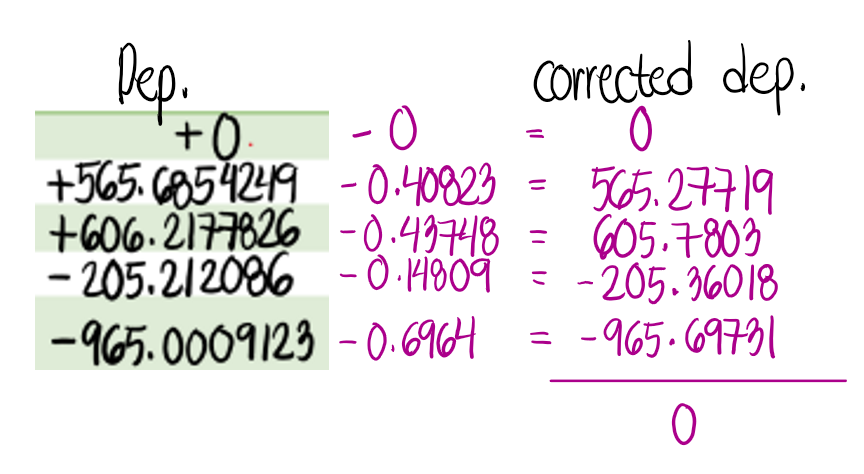 Dep. corrected dep.
+0 - 0 = 0
+565.6854249 - 0.40823 = 565.27719
+606.2177826 - 0.43748 = 605.7803
- 205.212086 - 0.14809 = - 205.36018
- 965.0009123 - 0.6964 = - 965.69731
0